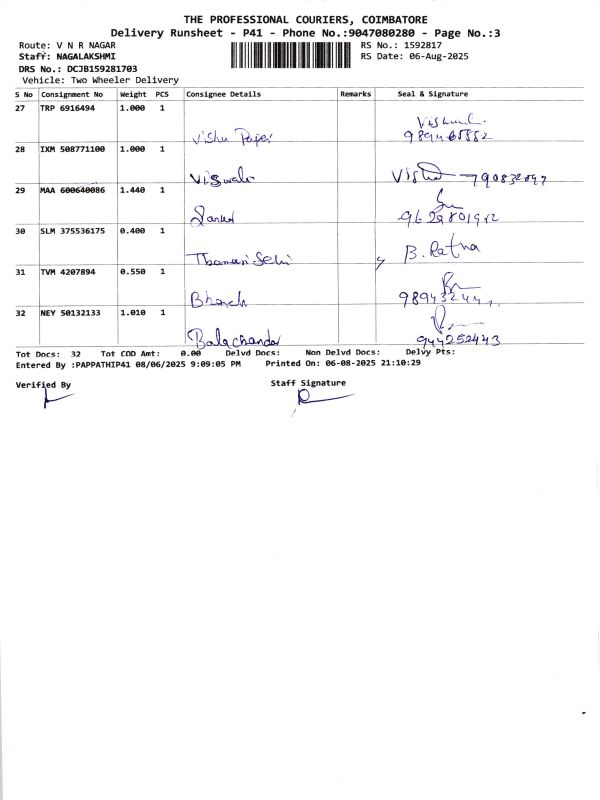 THE PROFESSIONAL COURIERS, COIMBATORE
Delivery Runsheet - P41 - Phone No.:9047080280 - Page No.:3
Route: V N R NAGAR RS No.: 1592817
Staff: NAGALAKSHMI RS Date: 06-Aug-2025
DRS No.: DCJB159281703
Vehicle: Two Wheeler Delivery
S No Consignment No Weight PCS Consignee Details Remarks Seal & Signature
27 TRP 6916494 1.000 1
Vishu Paper
28 IXM 508771100 1.000 1
29 MAA 600640086 1.440 1
30 SLM 375536175 0.400 1
B. Ratna
31 TVM 4207894 0.550 1
32 NEY 50132133 1.010 1
Balachandar 944252443
Tot Docs: 32 Tot COD Amt: 0.00 Delvd Docs: Non Delvd Docs: Delvy Pts:
Entered By :PAPPATHIP41 08/06/2025 9:09:05 PM Printed On: 06-08-2025 21:10:29
Verified By Staff Signature